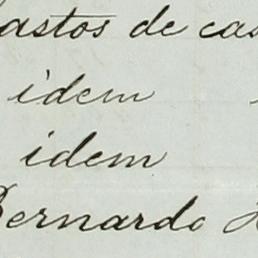 Gastos de cas
idem
idem
Bernardo